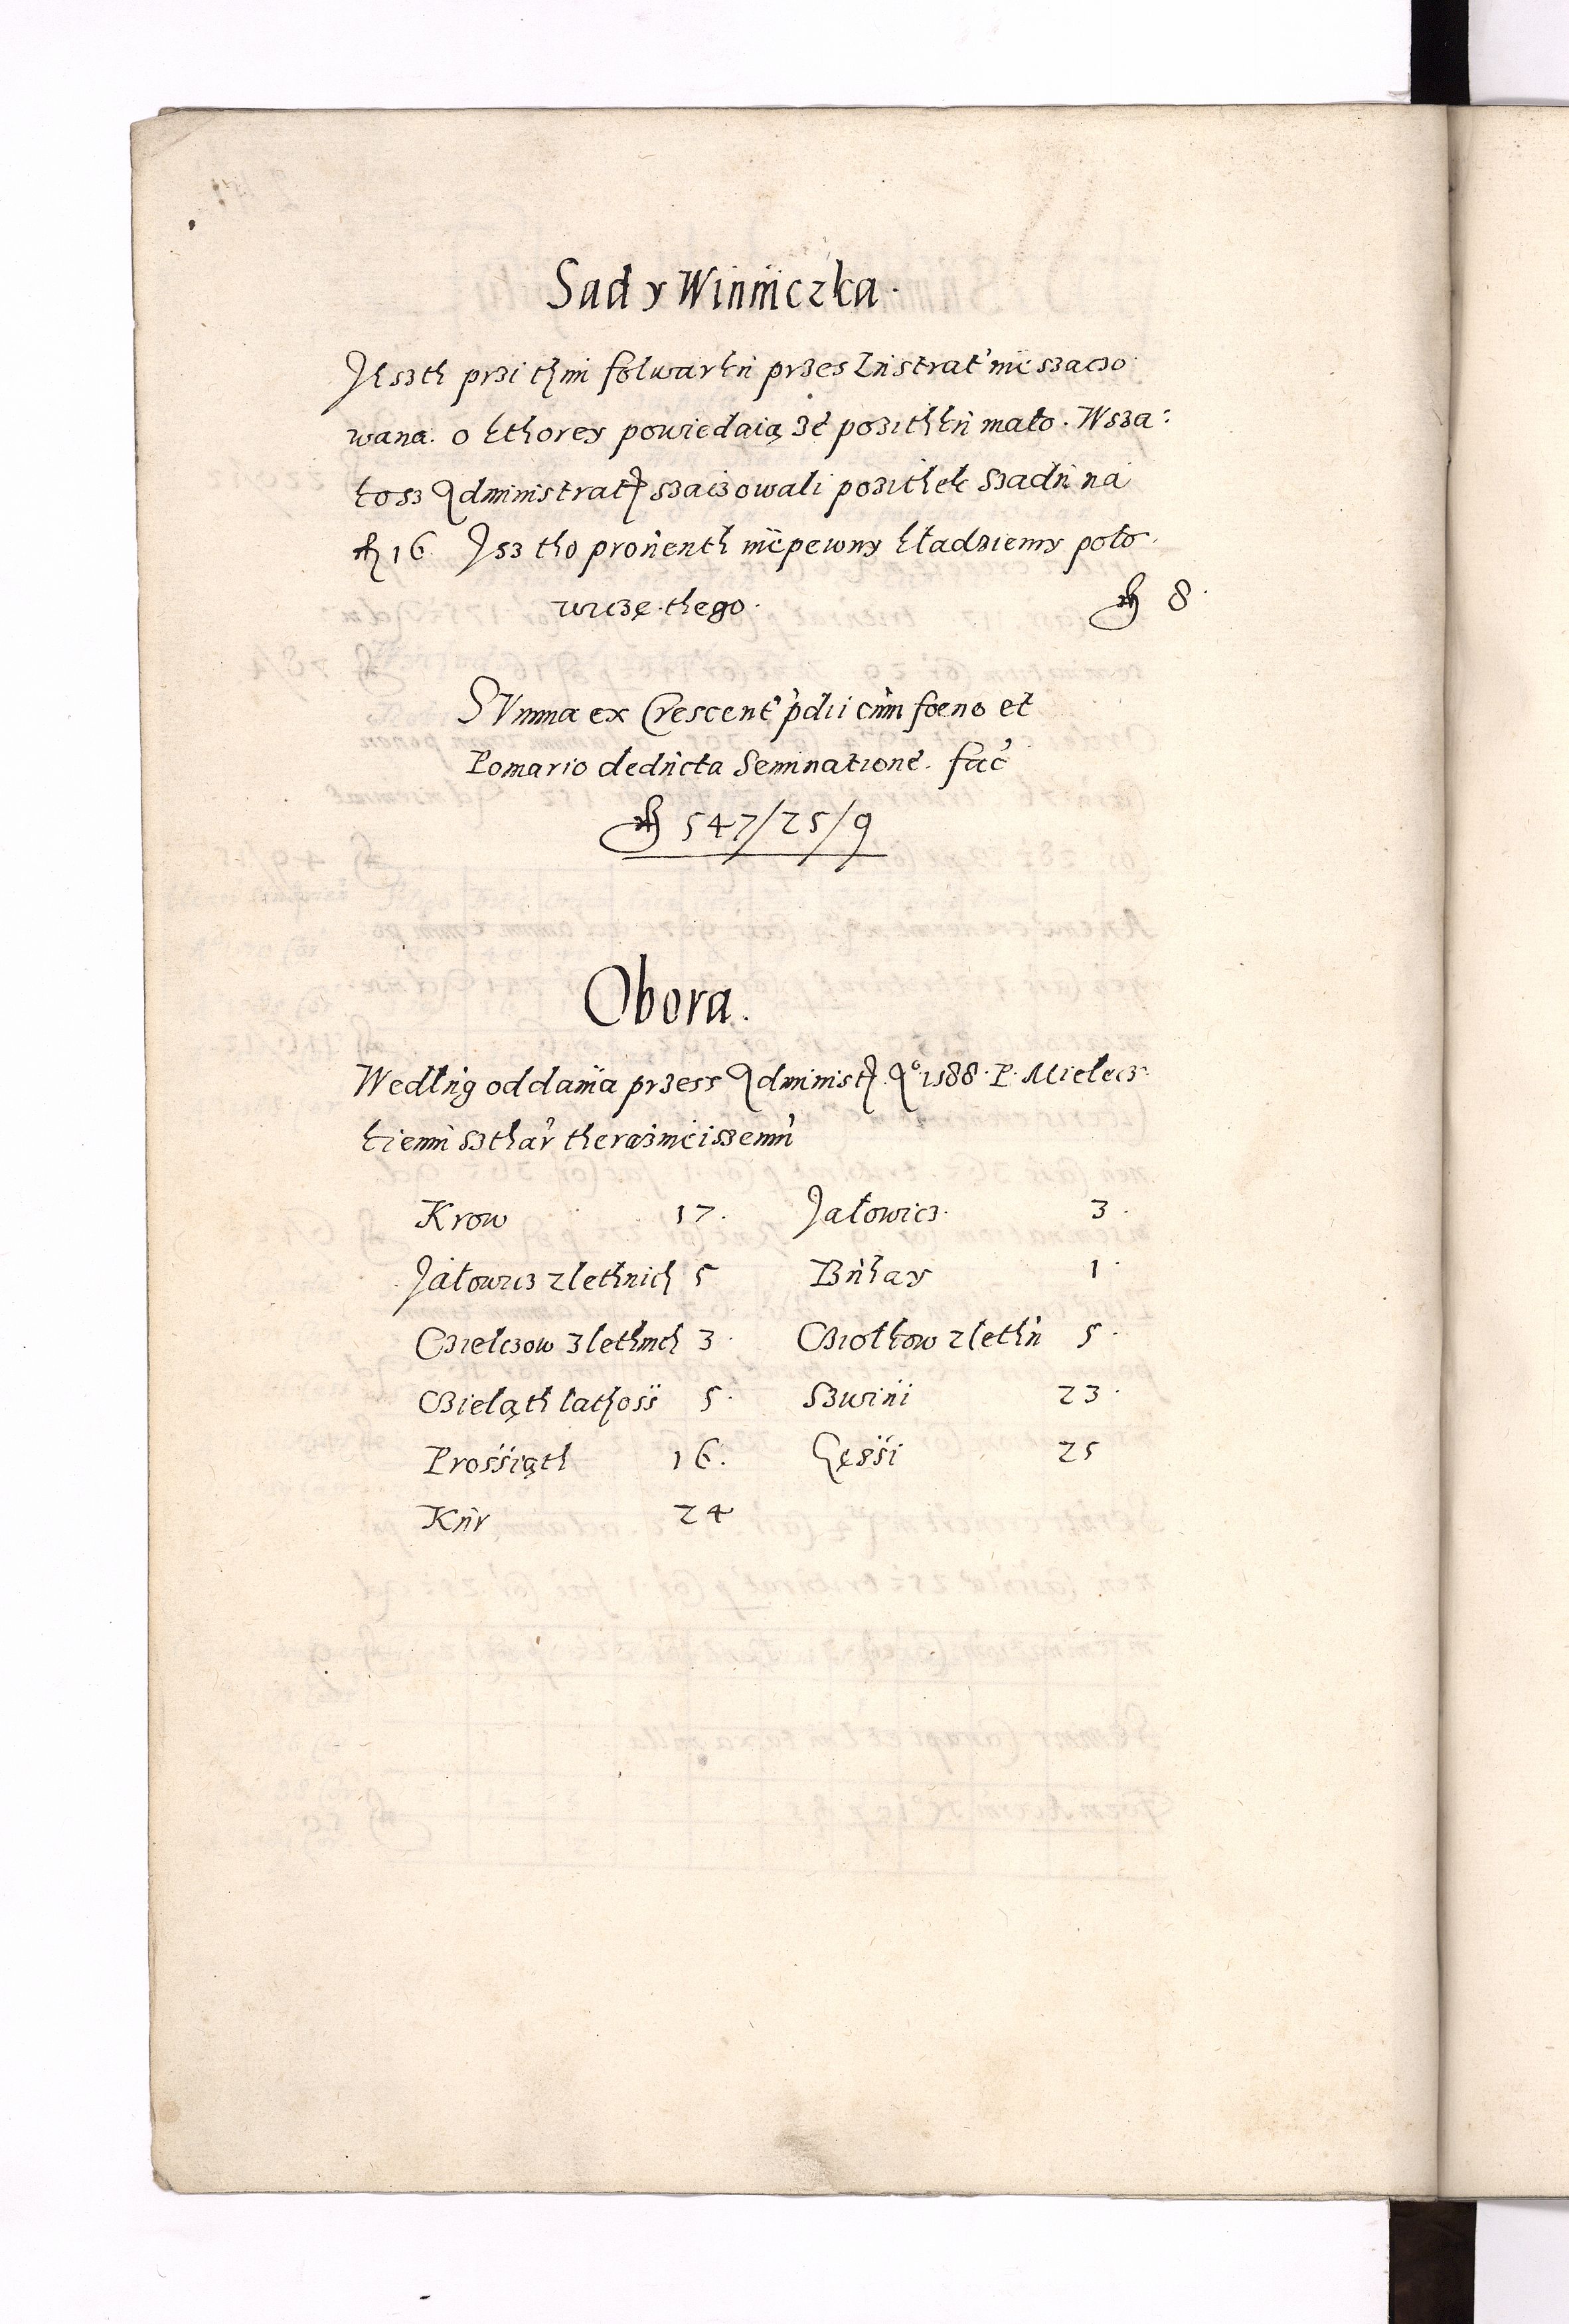 Sad y Winniczka.
Jesth przi thim folwarku przes Lustrat' nieszaczo
wana. o kthorey powiedaią że pożithku mało. Wsza:
kosz Administrat szaczowali pożithek szadu na
fl 16 Jsz tho prouenth niepewny kładziemy poło
wiczę thego. fl 8.
SVmma ex Crescent' p̃dii cum foeno et
Pomario deducta Seminatione. fac̃
fl 547/25/9
Obora.
Wedlug oddania przess Administ Aº. 1588. P. Mielecz
kiemu szthar̃ theraznieiszemu
Krow 17. Jałowicz. 3.
Jałowicz 2 lethnich 5 Buhay 1.
Czielczow 3 lethnich 3. Cziołkow 2 lethn 5.
Czieląth lathosi 5. Szwini 23.
Prossiąth 16. Gęssi 25
Kur 24